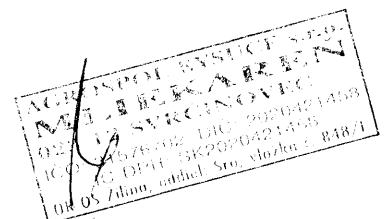 AGROSPOL KYSUCE s.r.o.
MLIEKAREN
SVRČINOVEC
DIČ: 2020421458
IČ DPH: SK2020421458
OR OS Žilina, oddiel: Sro, vložka č. 848/L